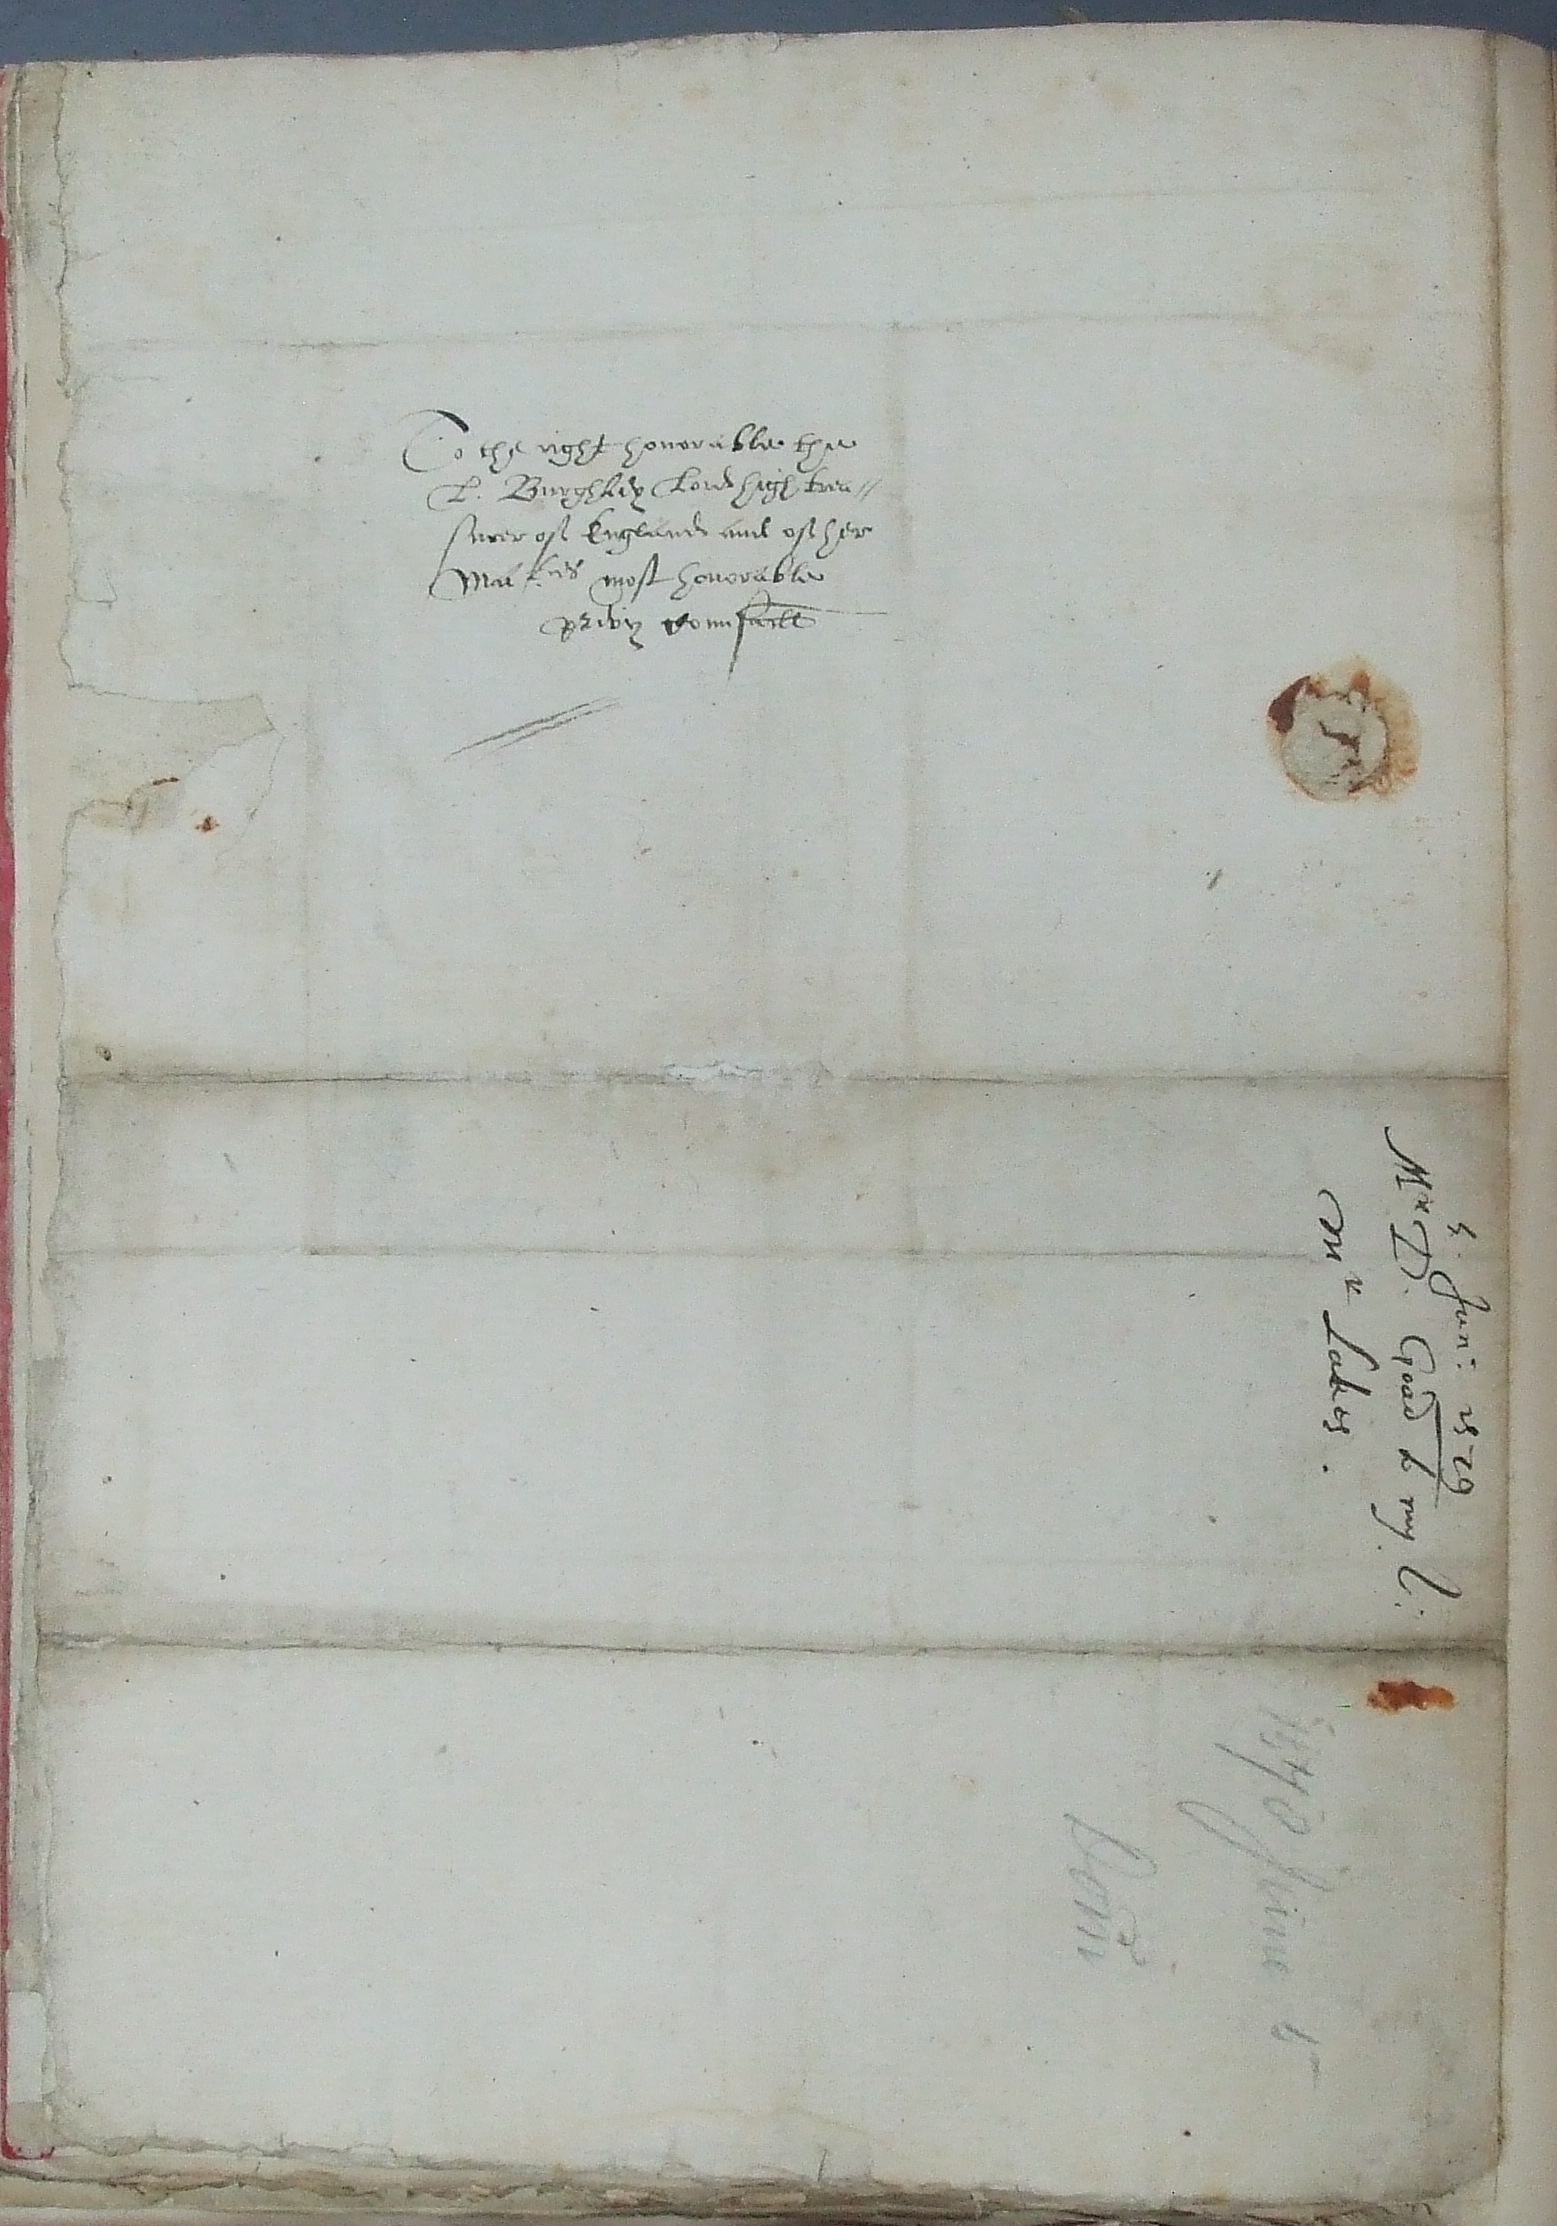 To the right honorable the
L. Burghley Lord high trea//
surer of England and of her
Ma.ties most honorable
privy counsaill
5. Jun: 1579
Mr D. Goad to my l:
Mr Lakes.
June 5
Dom